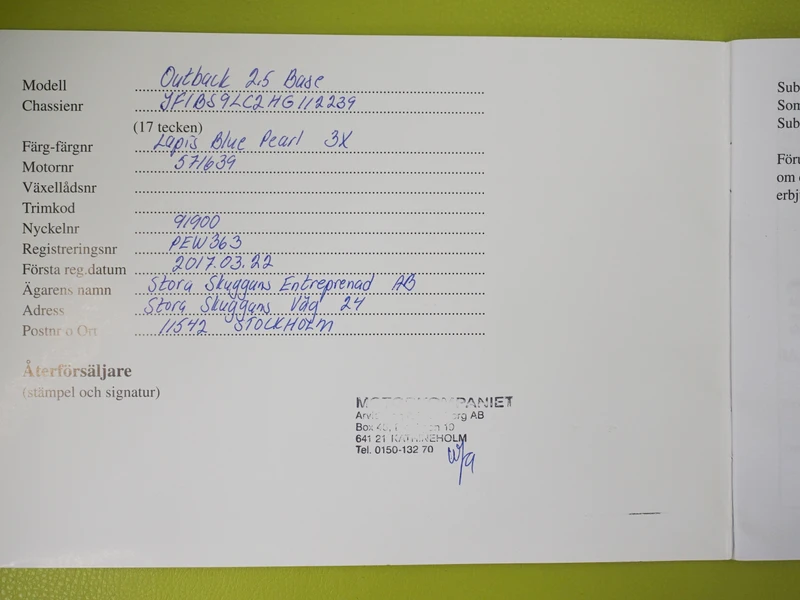 Modell Outback 2.5 Base
Chassienr JF1BS9LC2HG112239
(17 tecken)
Färg-färgnr Lapis Blue Pearl 3X
Motornr 571639
Växellådsnr
Trimkod
Nyckelnr 91900
Registreringsnr PEW363
Första reg.datum 2017.03.22
Ägarens namn Stora Skuggans Entreprenad AB
Adress Stora Skuggans Väg 24
Postnr o Ort 11542 STOCKHOLM
Återförsäljare
(stämpel och signatur)
MOTORKOMPANIET
AB
Box
641 21 KATRINEHOLM
Tel. 0150-132 70
Sub
Som
Sub
Föru
om
erbj